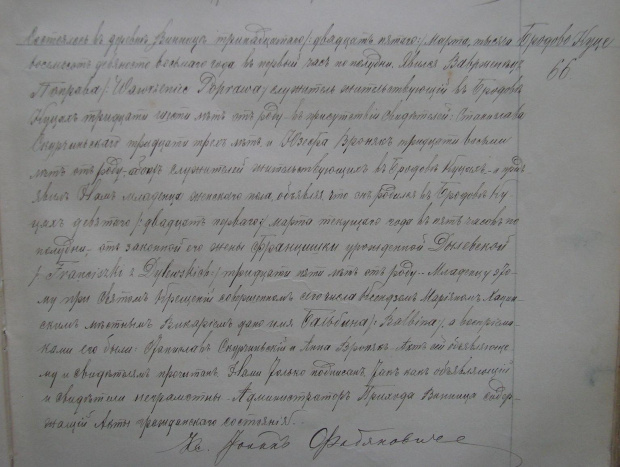 Состоялось въ деревнѣ Винница тринадцатаго /двадцать пятаго/ Марта, тысяча
восемьсотъ девяносто восьмаго года въ первый часъ по полудни. Явился Вавржинецъ
Поправа /Wawrzeniec Poprawa/ служитель жительствующій въ Бродовѣ
Куцахъ тридцати шести лѣтъ отъ роду, въ присутствіи свидѣтелей: Станислава
Скурчинскаго тридцати трехъ лѣтъ, и Юзефа Вронякъ тридцати восьми
лѣтъ отъ роду, обоихъ служителей жительствующихъ въ Бродовѣ Куцахъ, и предъ
явилъ Намъ младенца женскаго пола, объявляя что онъ родился въ Бродовѣ Ку
цахъ девятаго /двадцать перваго/ марта текущаго года въ пять часовъ по
полудни, отъ законной его жены Францишки урожденной Дыловской
/Franciszki z Dylewskich/ тридцати пяти лѣтъ отъ роду. Младенцу э
му при Святомъ Крещеніи совершенномъ сего числа Ксендзомъ
мѣстнымъ Викаріемъ дано имя Бальбина /Balbina/, а воспріем-
никами его были: Станиславъ Скурчинскій и Анна Вронякъ. Актъ сей объявляюще-
му и свидѣтелямъ прочитанъ, Нами только подписанъ, такъ какъ объявляющій
и свидѣтели неграмотны. Администраторъ Прихода Винница Содер-
жащій Акты гражданскаго состоянія.
Кс.
Бродово Куце
66